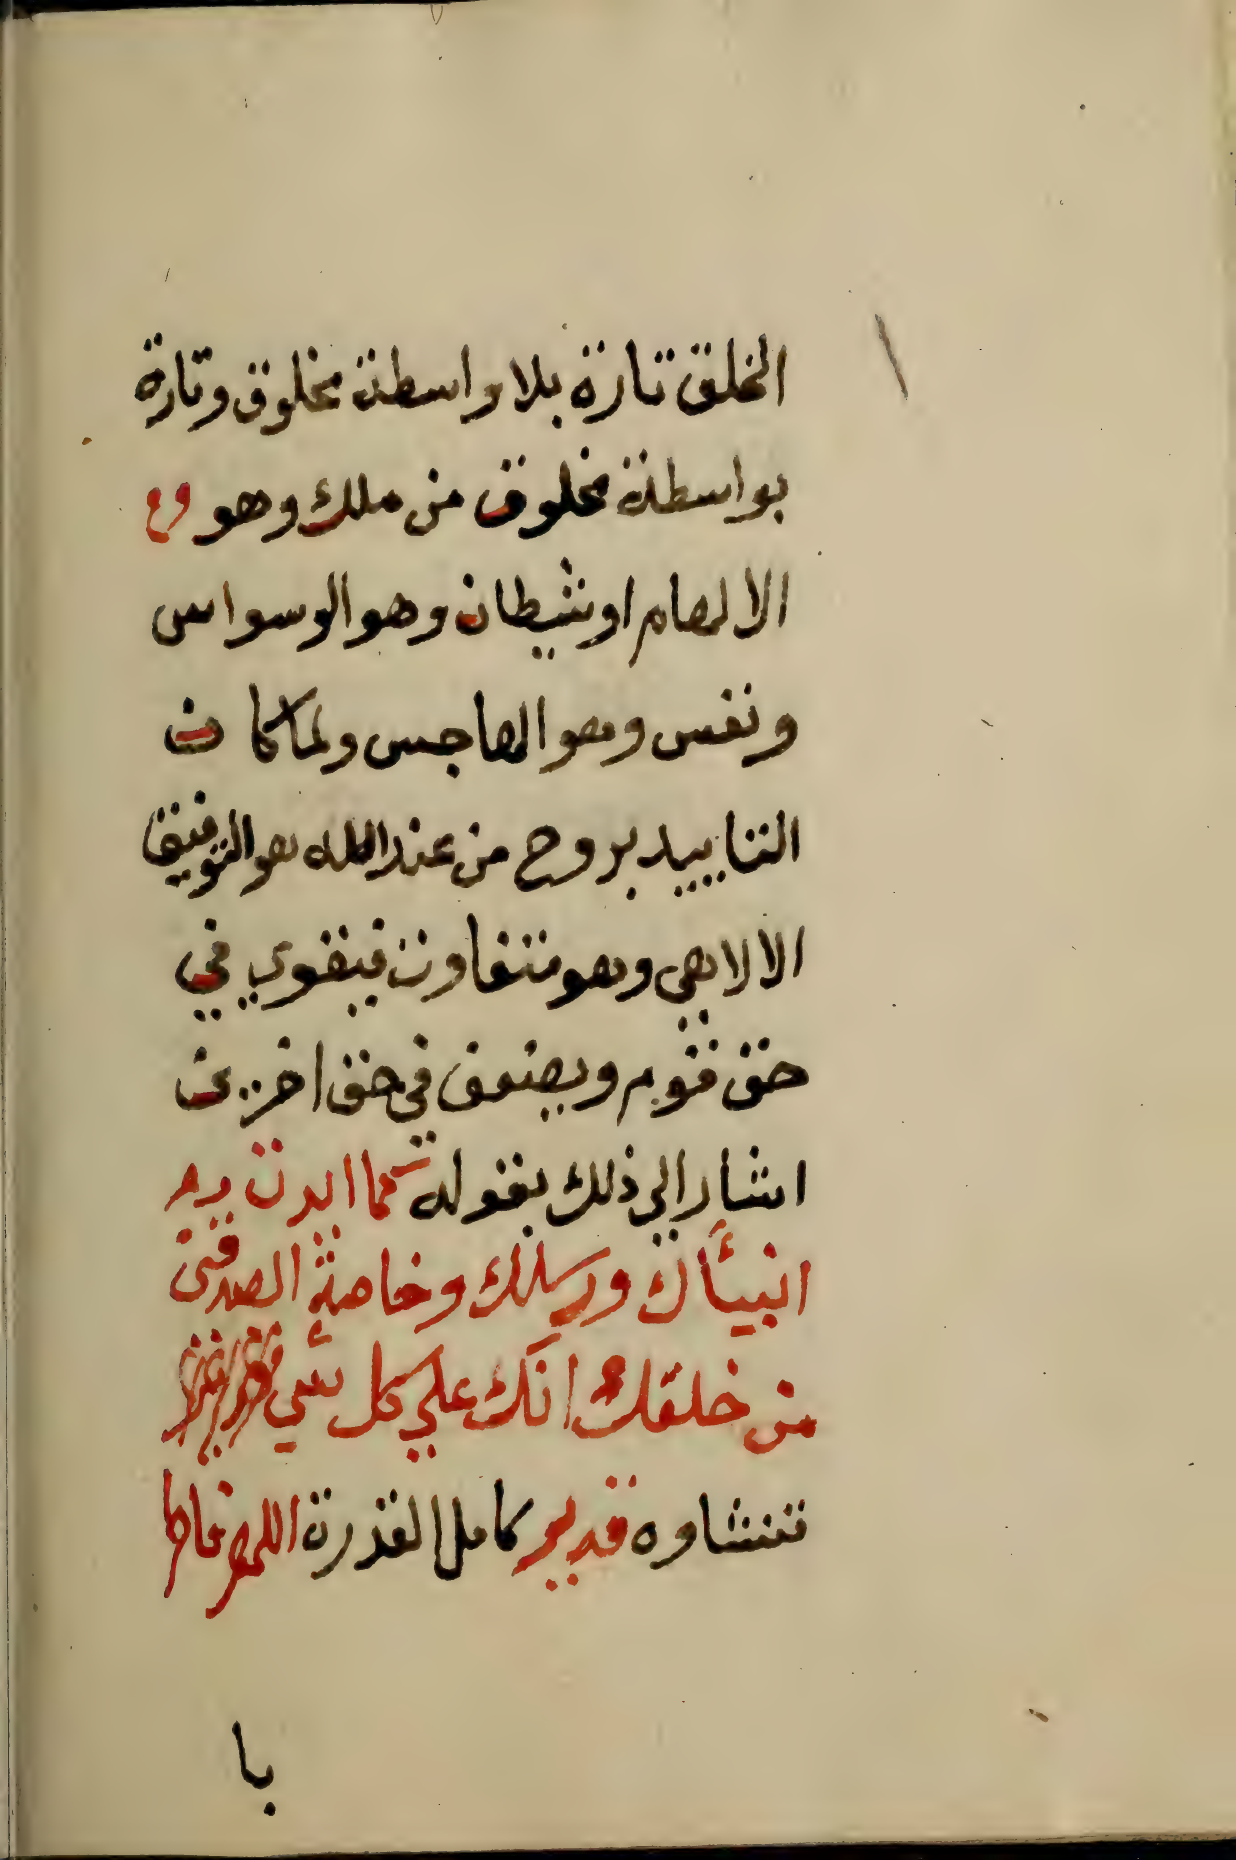 الخلق تارة بلا واسطة مخلوق وتارة
بواسطة مخلوق من ملك وهو
الالهام او شيطان وهو الوسواس
ونفس وهو الهاجس ولما كان
التاييد بروح من عند الله هو التوفيق
الالاهي وهو متفاوت فيقوي في
حق قوم ويضعف في حق اخرين
اشار الي ذلك بقوله كما ايدت به
انبيأك ورسلك وخاصة الصد
من خلقك انك علي كل شي
تشاوه قدير كامل القدرة اللهم فاطر
با